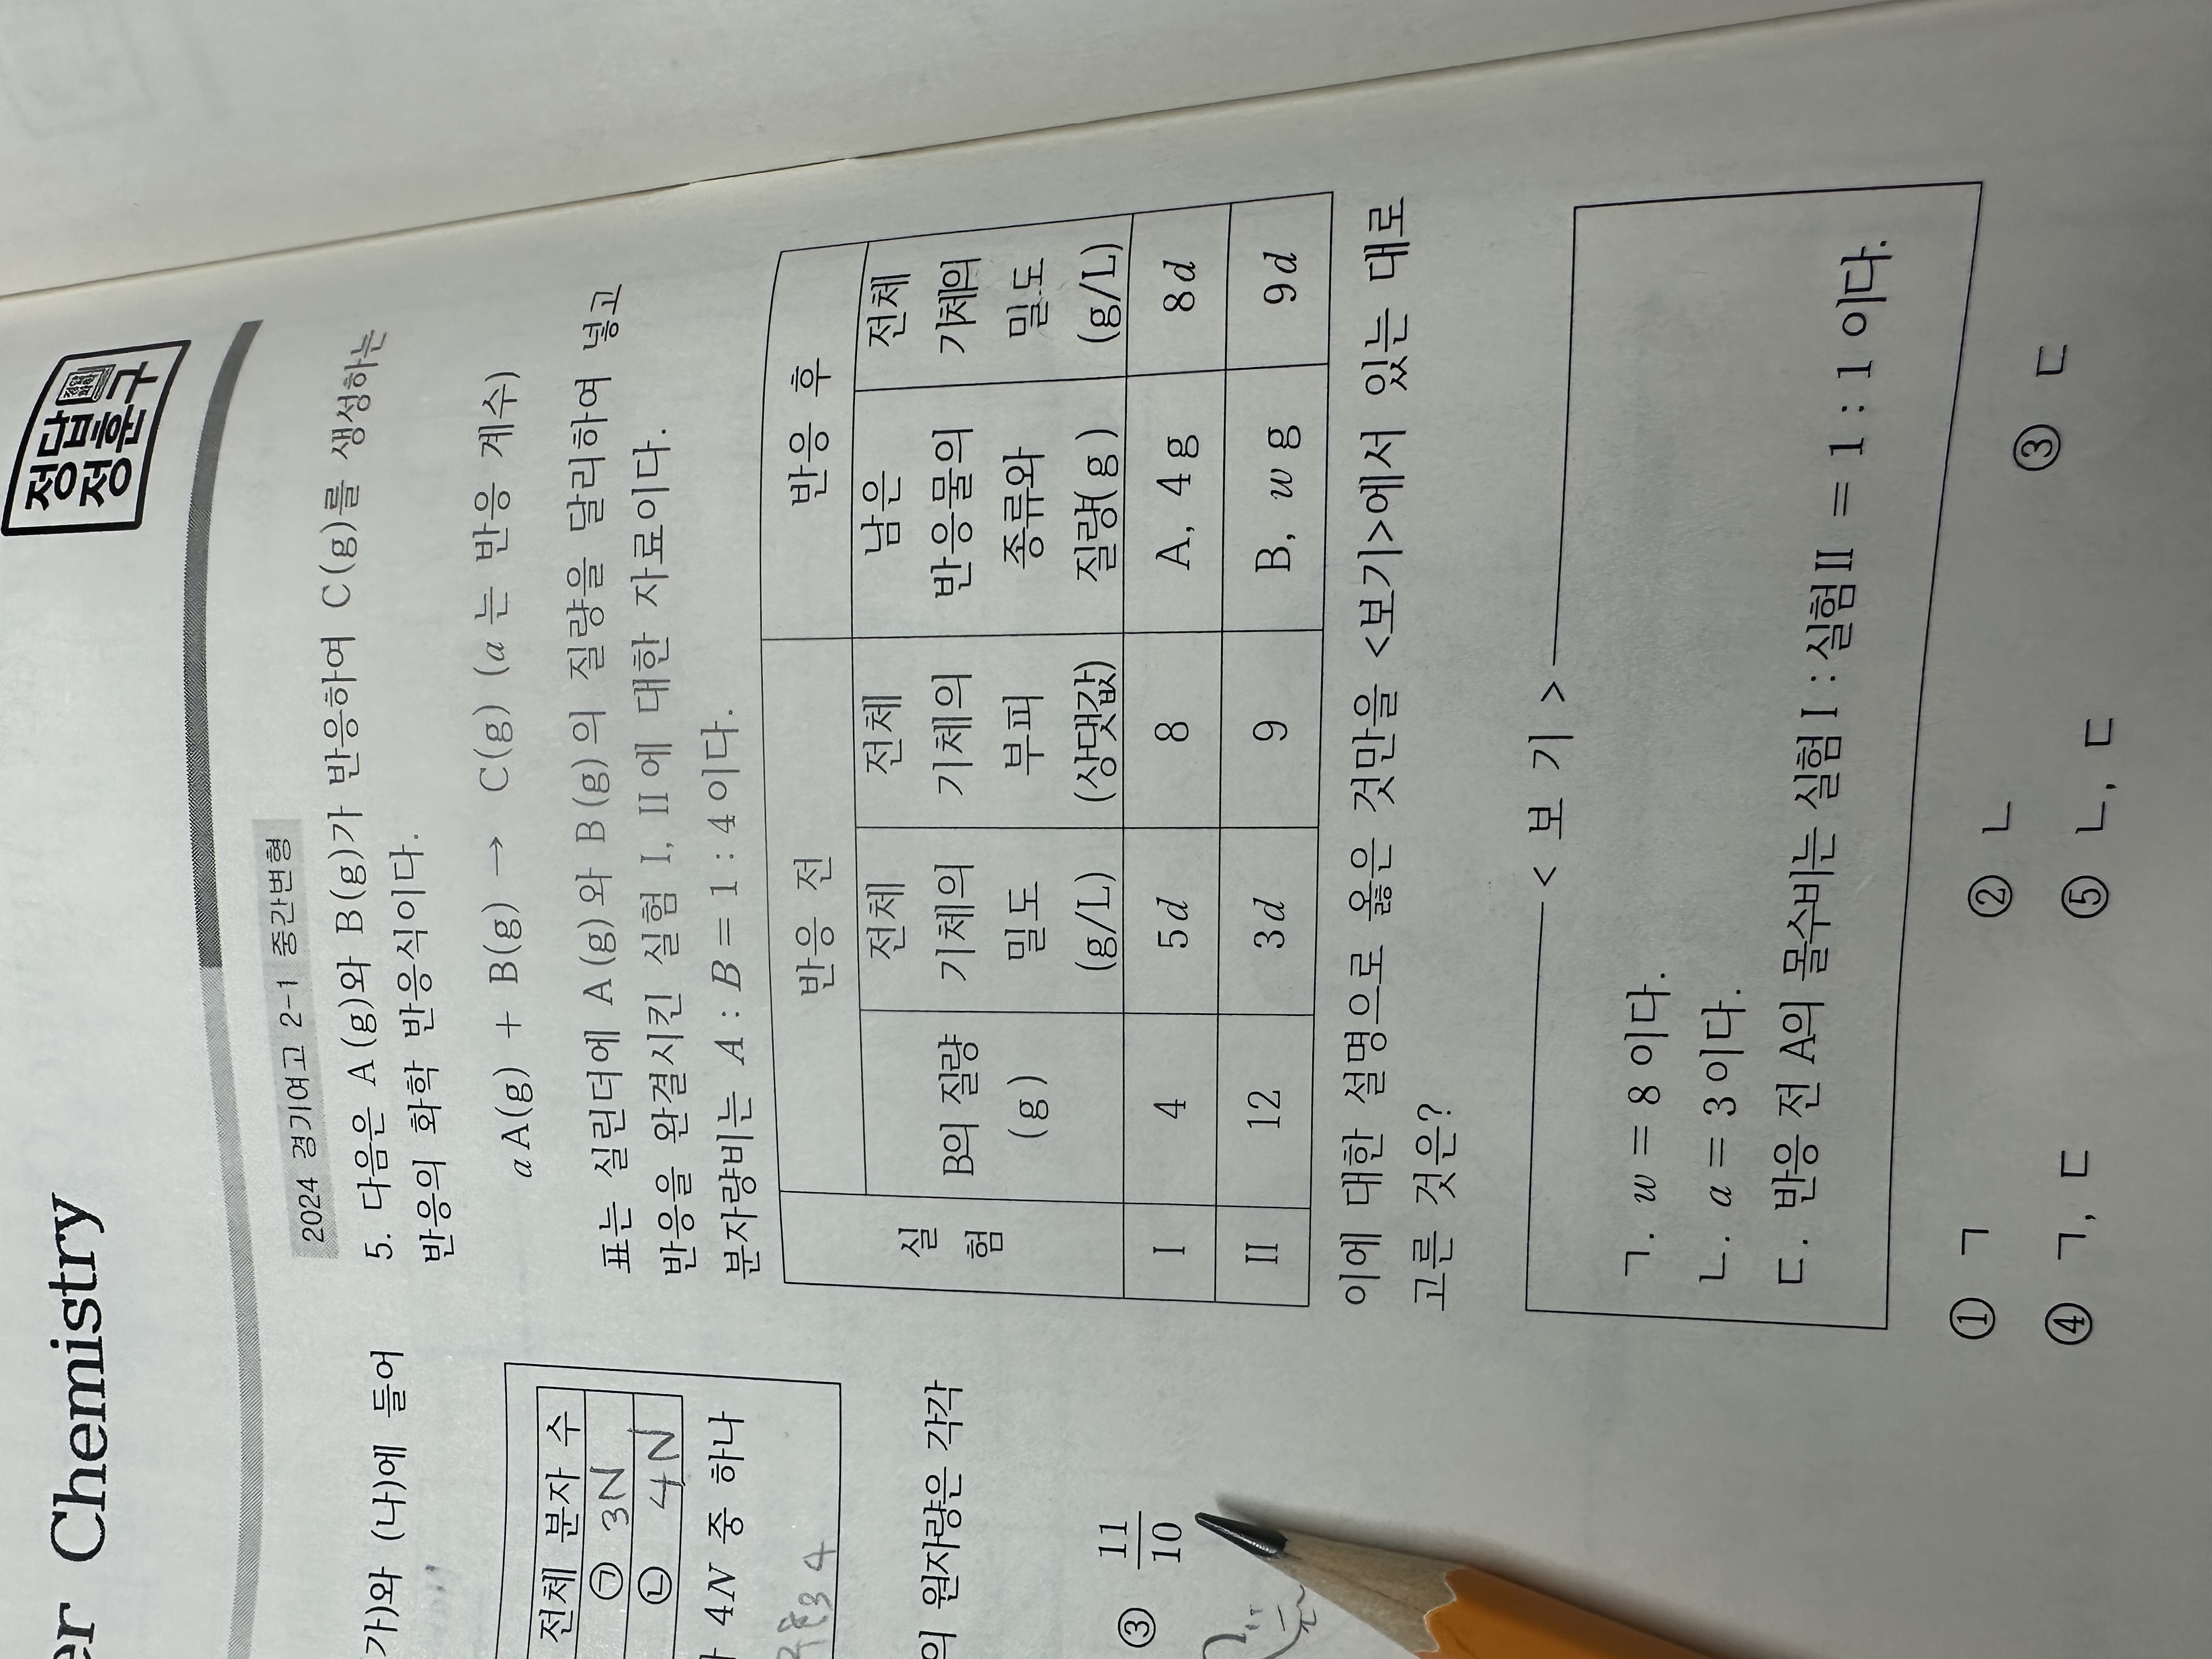 er Chemistry
정답
정훈구
가)와 (나)에 들어
전체 분자 수
㉠ 3N
㉡ 4N
4N 중 하나
의 원자량은 각각
③ 11/10
2024 경기여고 2-1 중간변형
5. 다음은 A(g)와 B(g)가 반응하여 C(g)를 생성하는
반응의 화학 반응식이다.
aA(g) + B(g) → C(g) (a는 반응 계수)
표는 실린더에 A(g)와 B(g)의 질량을 달리하여 넣고
반응을 완결시킨 실험 I, II에 대한 자료이다.
분자량비는 A : B = 1 : 4이다.
실험
반응 전
반응 후
B의 질량 (g)
전체 기체의 밀도 (g/L)
전체 기체의 부피 (상댓값)
남은 반응물의 종류와 질량(g)
전체 기체의 밀도 (g/L)
I 4 5d 8 A, 4g 8d
II 12 3d 9 B, wg 9d
이에 대한 설명으로 옳은 것만을 <보기>에서 있는 대로
고른 것은?
< 보 기 >
ㄱ. w = 8이다.
ㄴ. a = 3이다.
ㄷ. 반응 전 A의 몰수비는 실험 I : 실험 II = 1 : 1이다.
① ㄱ ② ㄴ ③ ㄷ
④ ㄱ, ㄷ ⑤ ㄴ, ㄷ